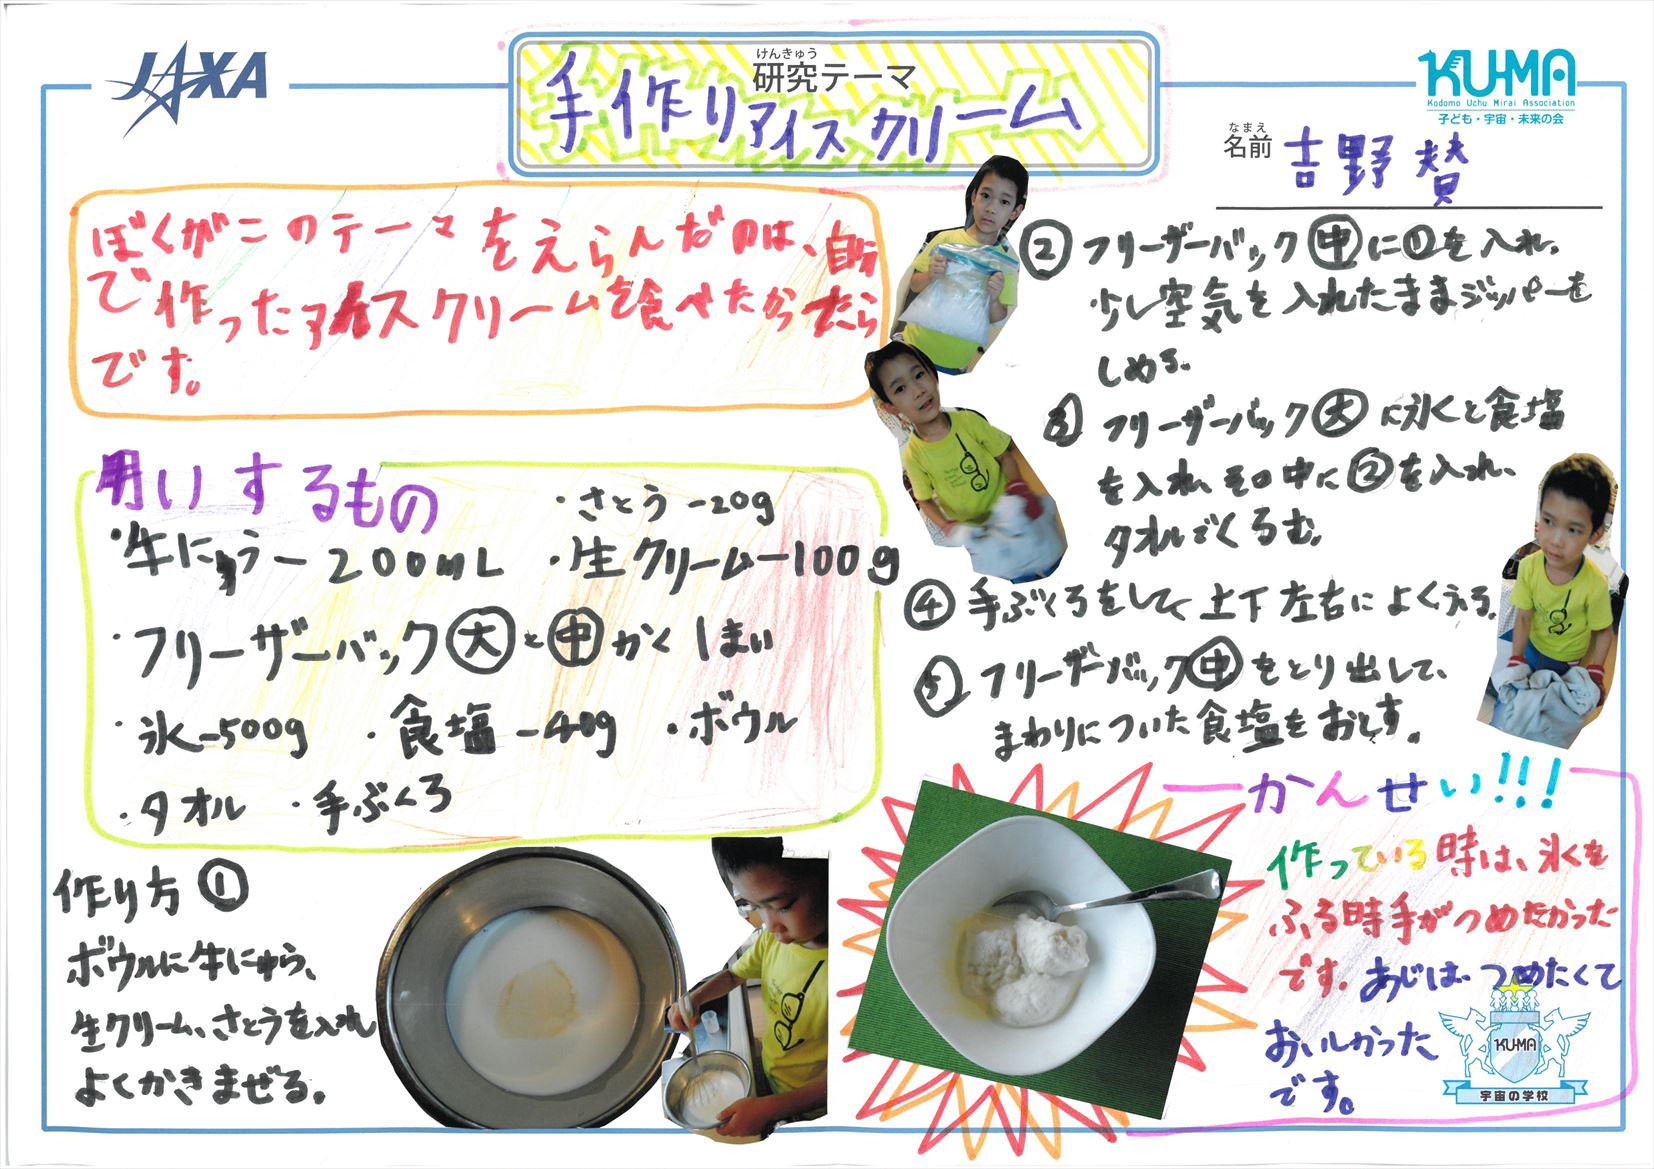 JAXA
けんきゅう
研究テーマ
手作りアイスクリーム
KU-MA
Kodomo Uchu Mirai Association
子ども・宇宙・未来の会
なまえ
名前
吉野 賛
ぼくがこのテーマをえらんだのは、自分
で作ったアイスクリームを食べたかったから
です。
用いするもの
・さとう-20g
・牛にゅう-200mL ・生クリーム-100g
・フリーザーバック大と中かく1まい
・氷-500g ・食塩-40g ・ボウル
・タオル ・手ぶくろ
作り方 ①
ボウルに牛にゅう、
生クリーム、さとうを入れ
よくかきまぜる。
② フリーザーバック中に①を入れ、
少し空気を入れたままジッパーを
しめる。
③ フリーザーバック大に氷くと食塩
を入れ、その中に②を入れ、
タオルでくるむ。
④ 手ぶくろをして、上下左右によくふる。
⑤ フリーザーバック中をとり出して、
まわりについた食塩をおとす。
かんせい!!!
作っている時は、氷くを
ふる時手がつめたかった
です。あじは、つめたくて
おいしかった
です。
KU-MA
宇宙の学校